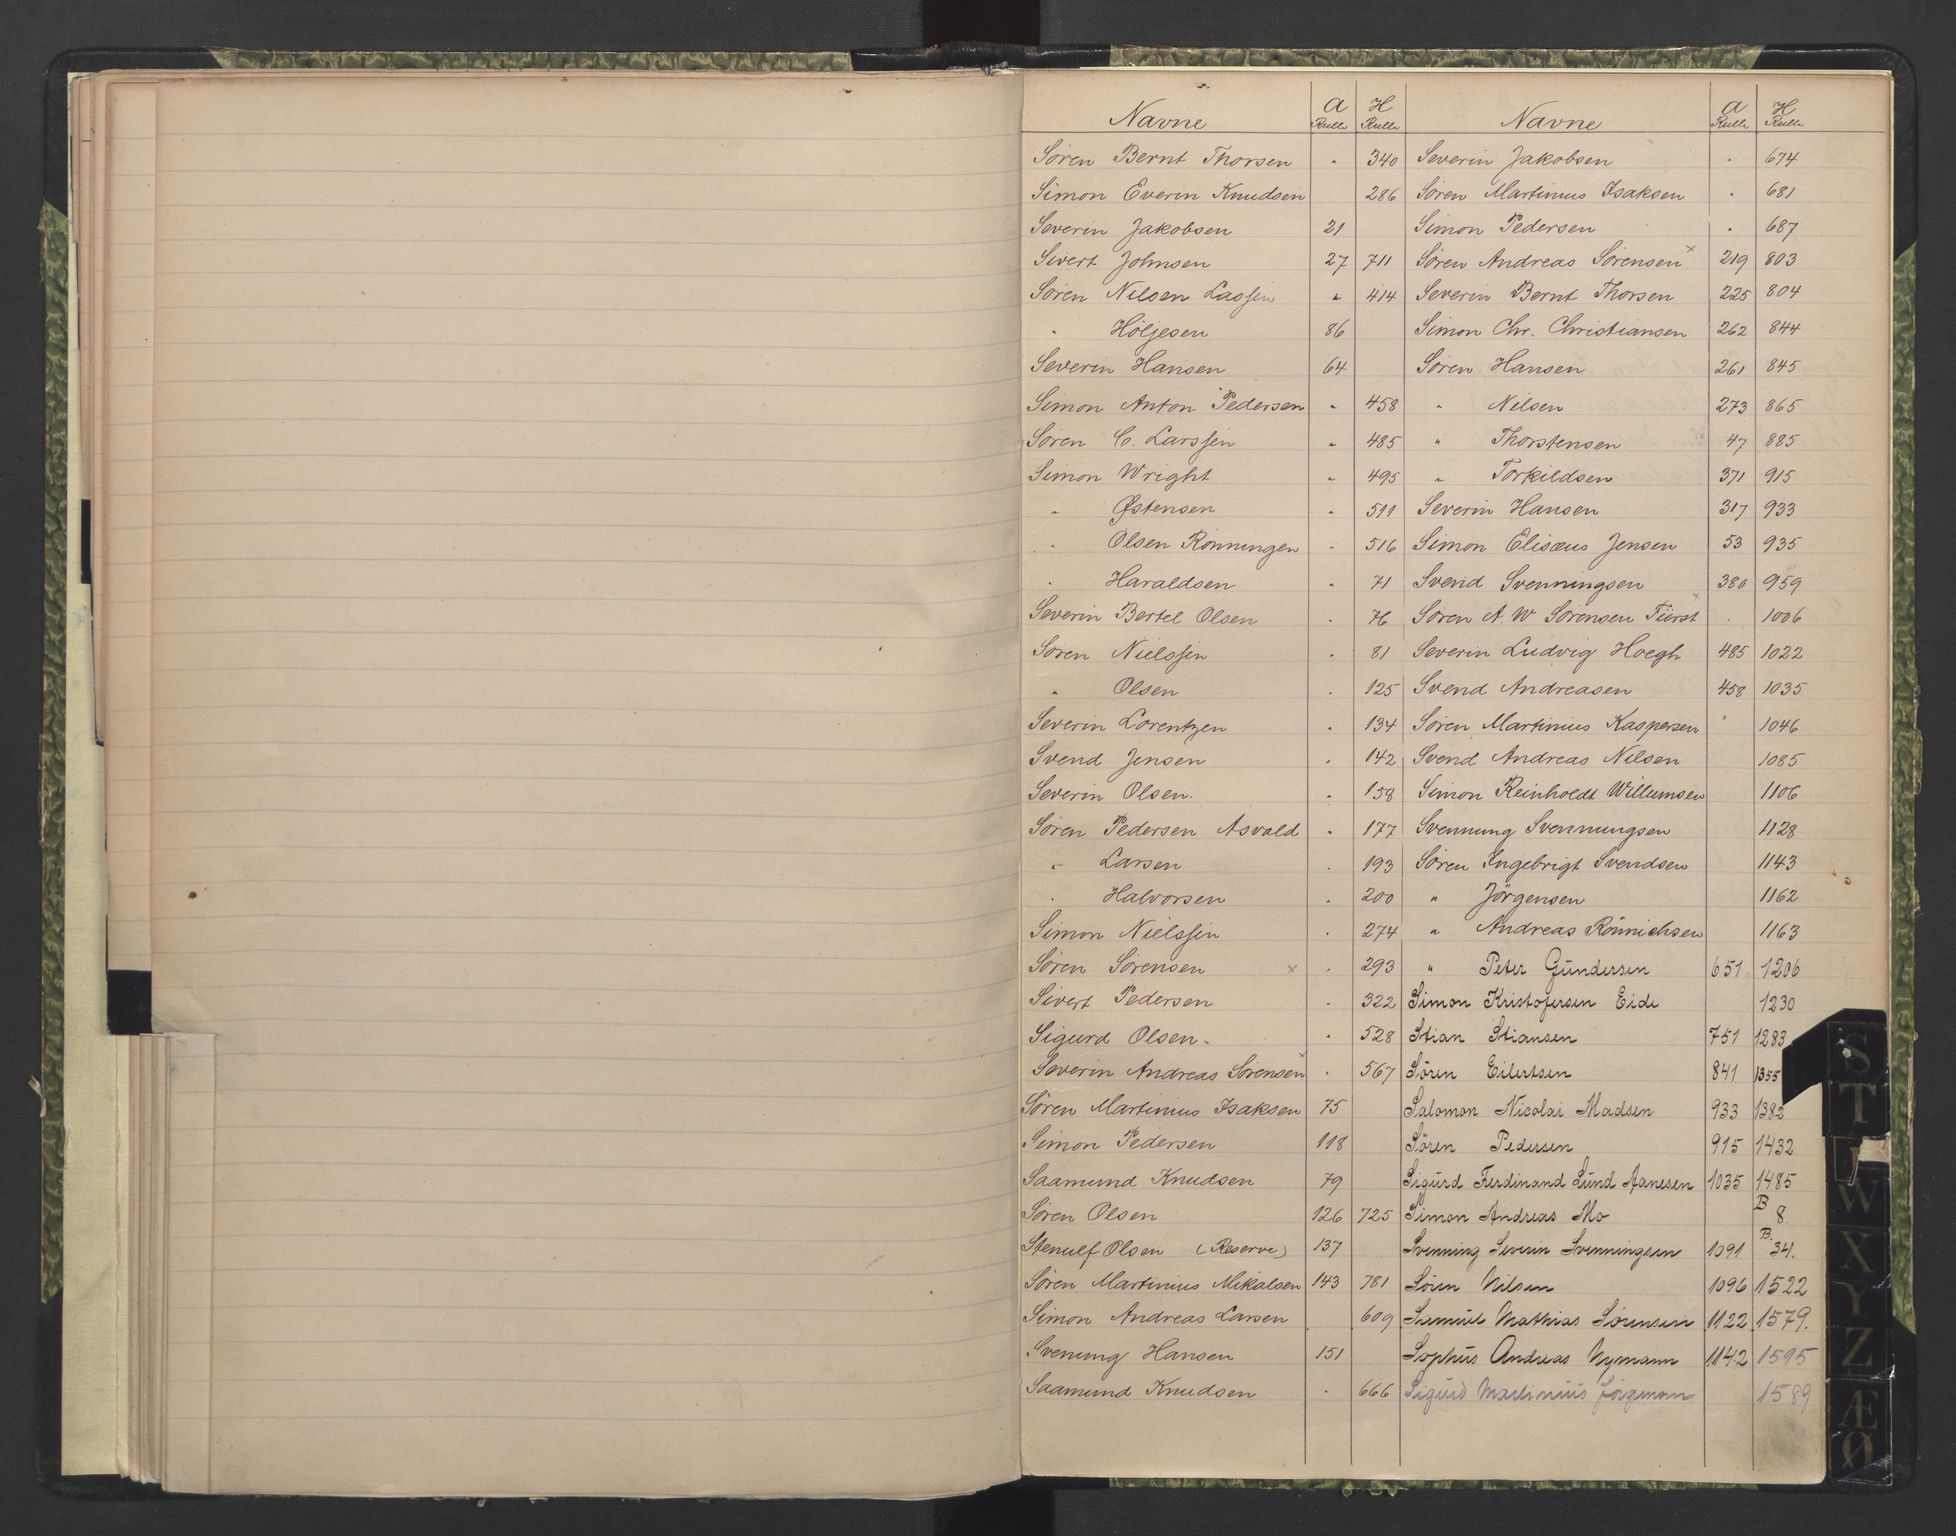 Navne A Rulle H Rulle Navne A Rulle H Rulle
Søren Bernt Thorsen " 340 Severin Jakobsen " 674
Simon Everin Knudsen 286 Søren Martinius Isaksen " 681
Severin Jakobsen 21 Simon Pedersen " 687
Sivert Johnsen 27 711 Søren Andreas Sørensen x 219 803
Søren Nilsen Lassen " 414 Severin Bernt Thorsen 225 804
" Höljesen 86 Simon Chr. Christiansen 262 844
Severin Hansen 64 Søren Hansen 261 845
Simon Anton Pedersen " 458 " Nilsen 273 865
Søren C. Larssen " 485 " Thorstensen 47 885
Simon Wright " 495 " Torkildsen 371 915
" Østensen " 511 Severin Hansen 317 933
" Olsen Rönningen " 516 Simon Elisæus Jensen 53 935
" Haraldsen " 71 Svend Svenningsen 380 959
Severin Bertel Olsen " 76 Søren A. W Sörensen Fürst x " 1006
Søren Nielssen " 81 Severin Ludvig Hoegh 485 1022
" Olsen " 125 Svend Andreasen 458 1035
Severin Lorentzen " 134 Søren Martinius Kaspersen " 1046
Svend Jensen " 142 Svend Andreas Nilsen 1085
Severin Olsen. " 158 Simon Reinholdt Willumsen 1106
Søren Pedersen Asvald " 177 Svennung Svennungsen 1128
" Larsen " 193 Søren Ingebrigt Svendsen 1143
" Halvorsen " 200 " Jörgensen 1162
Simon Nielssen " 274 " Andreas Rönnichsen 1163
Søren Sørensen x " 293 " Peter Gundersen 651 1206
Sivert Pedersen " 322 Simon Kristofersen Eide 1230
Sigurd Olsen " 528 Stian Stiansen 751 1283
Severin Andreas Sörensen x " 567 Sören Eilertsen 841 1355
Søren Martinius Isaksen 75 Salomon Nicolai Madsen 933 1382
Simon Pedersen 118 Sören Pedersen 915 1432
Saamund Knudsen 79 Sigurd Ferdinand Lund Aanesen 1035 1485
Søren Olsen 126 725 Simon Andreas Mo B 8.
Stenulf Olsen (Reserve) 137 Svenning Severin Svenningsen 1091 B. 34.
Søren Martinius Mikalsen 143 781 Sören Nilsen 1096 1522
Simon Andreas Larsen 609 Samuel Mathias Sörensen 1122 1579.
Svenung Hansen 151 Sophus Andreas Nymann 1142 1595
Saamund Knudsen " 666 Sigurd Martinius Jörgensen 1589
S
T
W
X
Y
Z
Æ
Ø